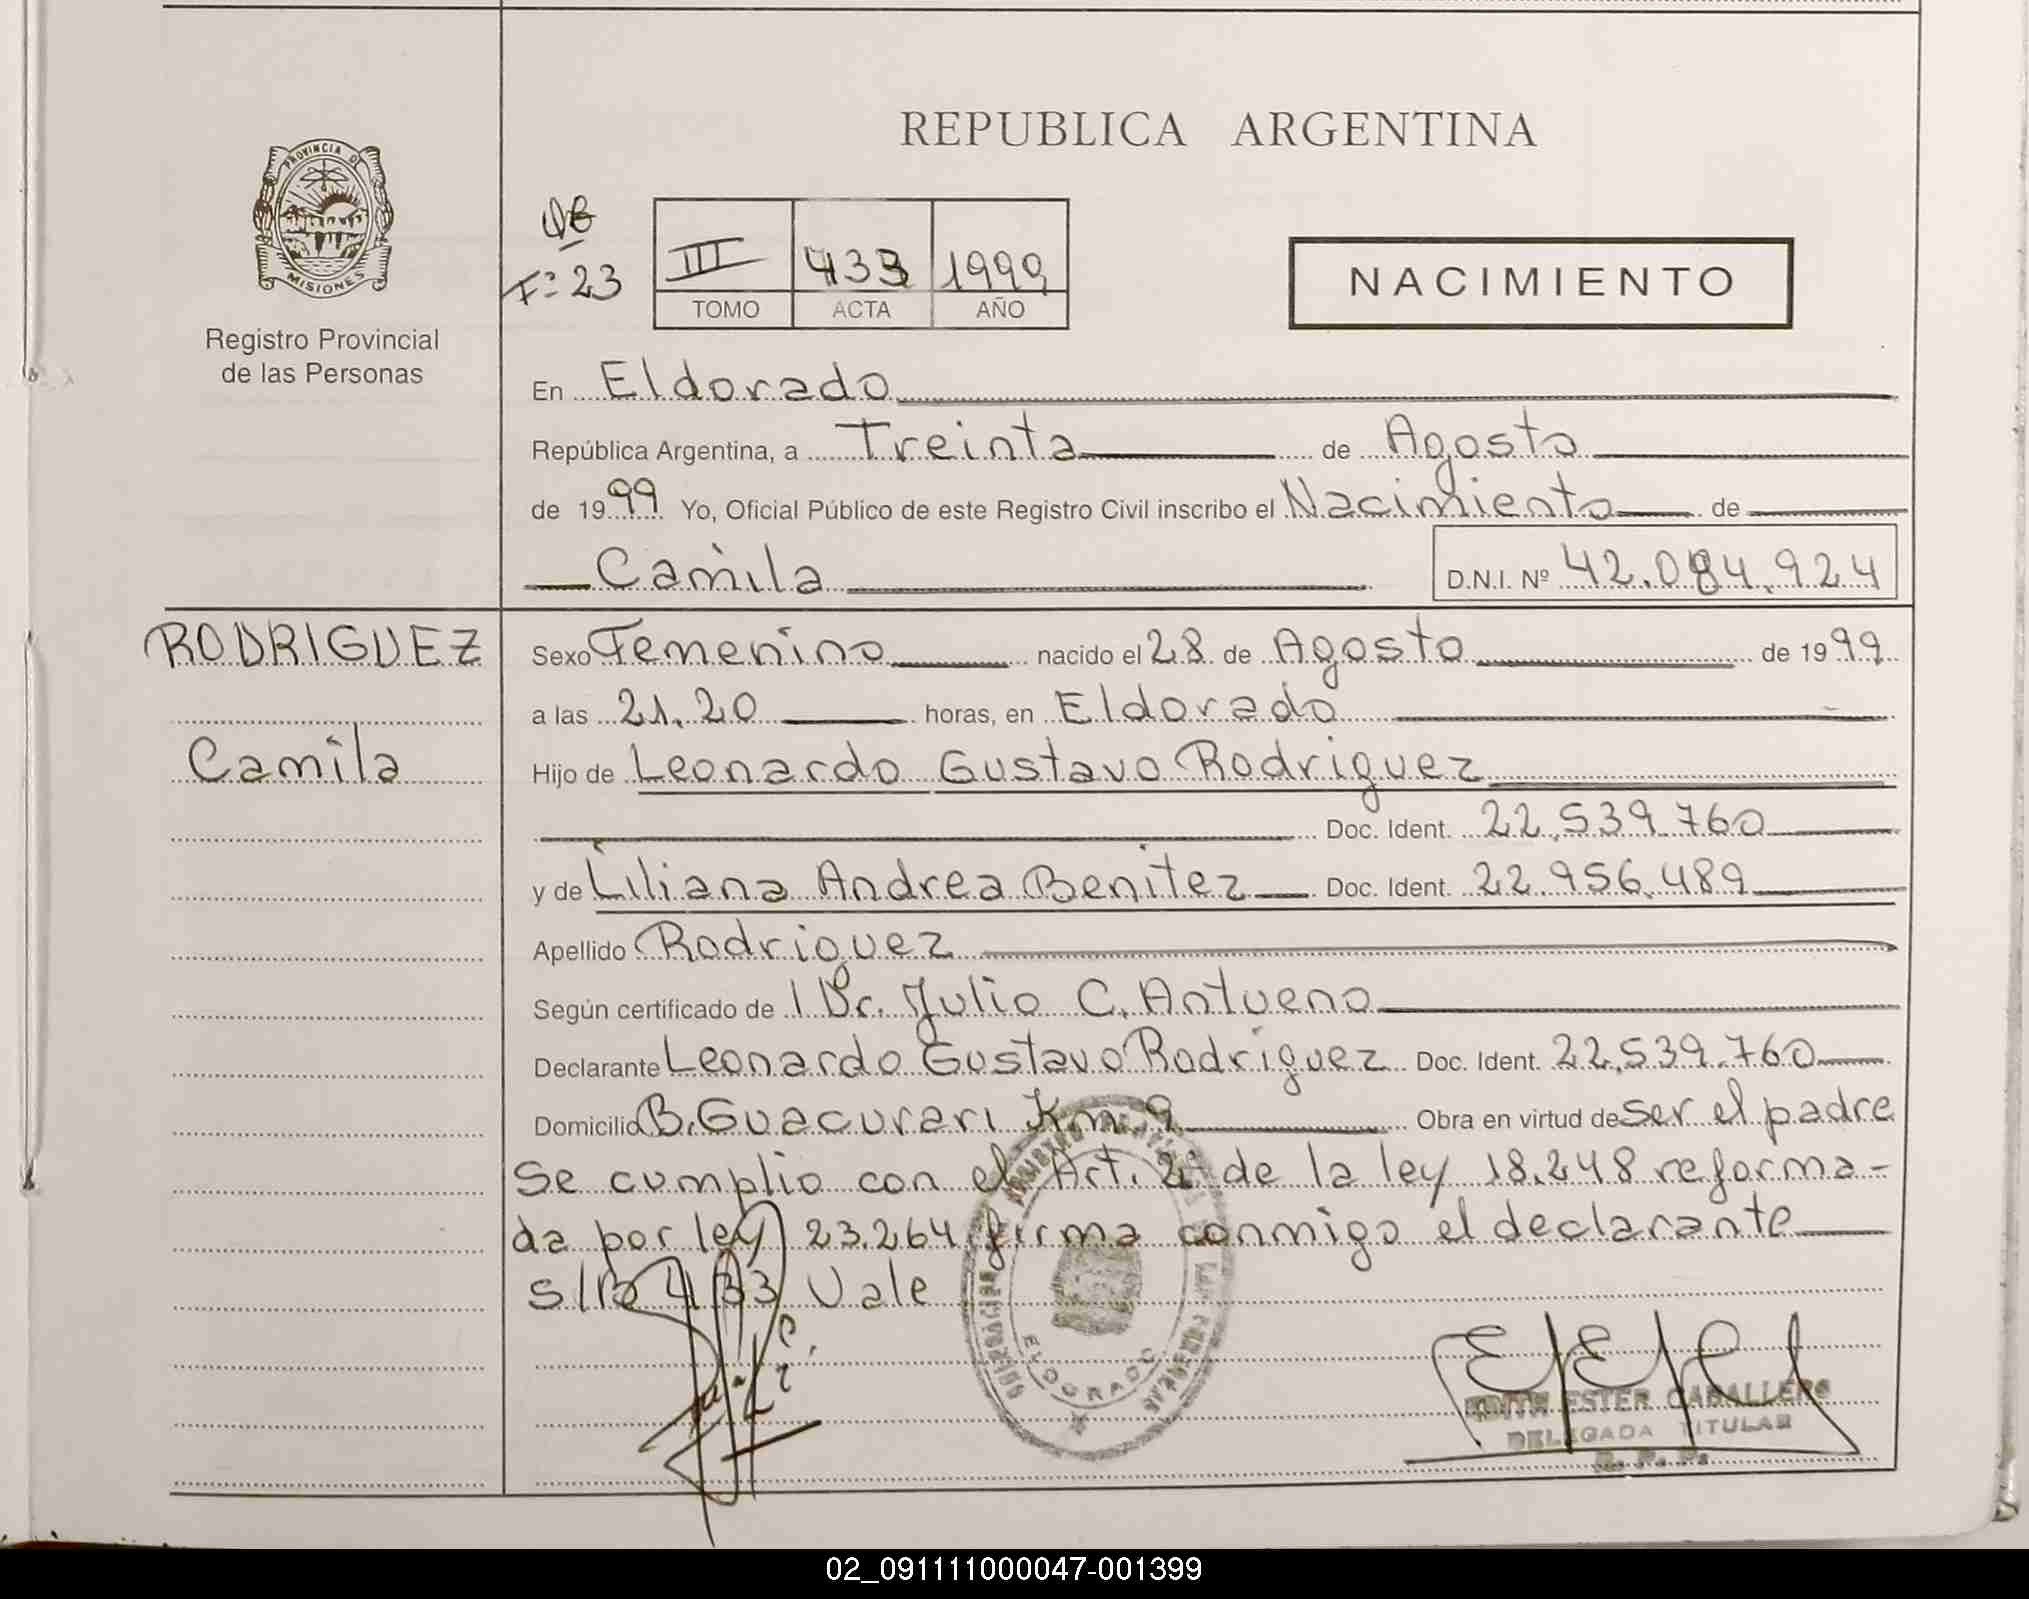 REPUBLICA ARGENTINA
PROVINCIA DE
MISIONES
Registro Provincial
de las Personas
Fº 23
III 433 1999
TOMO ACTA AÑO
NACIMIENTO
En Eldorado
República Argentina, a Treinta de Agosto
de 1999 Yo, Oficial Público de este Registro Civil inscribo el Nacimiento de
Camila D.N.I. Nº 42.084.924
RODRIGUEZ
Camila
Sexo Femenino nacido el 28 de Agosto de 1999
a las 21.20 horas, en Eldorado
Hijo de Leonardo Gustavo Rodriguez
Doc. Ident. 22.539.760
y de Liliana Andrea Benitez Doc. Ident. 22.956.489
Apellido Rodriguez
Según certificado de 1 Dr. Julio C. Antueno
Declarante Leonardo Gustavo Rodriguez Doc. Ident. 22.539.760
Domicilio B. Guacurari Km 9 Obra en virtud de ser el padre
Se cumplio con el Art. 2º de la ley 18.248 reforma-
da por ley 23.264 firma conmigo el declarante
S/B 433 Vale
ELDORADO
EDITH ESTER CABALLERO
DELEGADA TITULAR
R. P. P.
02_091111000047-001399